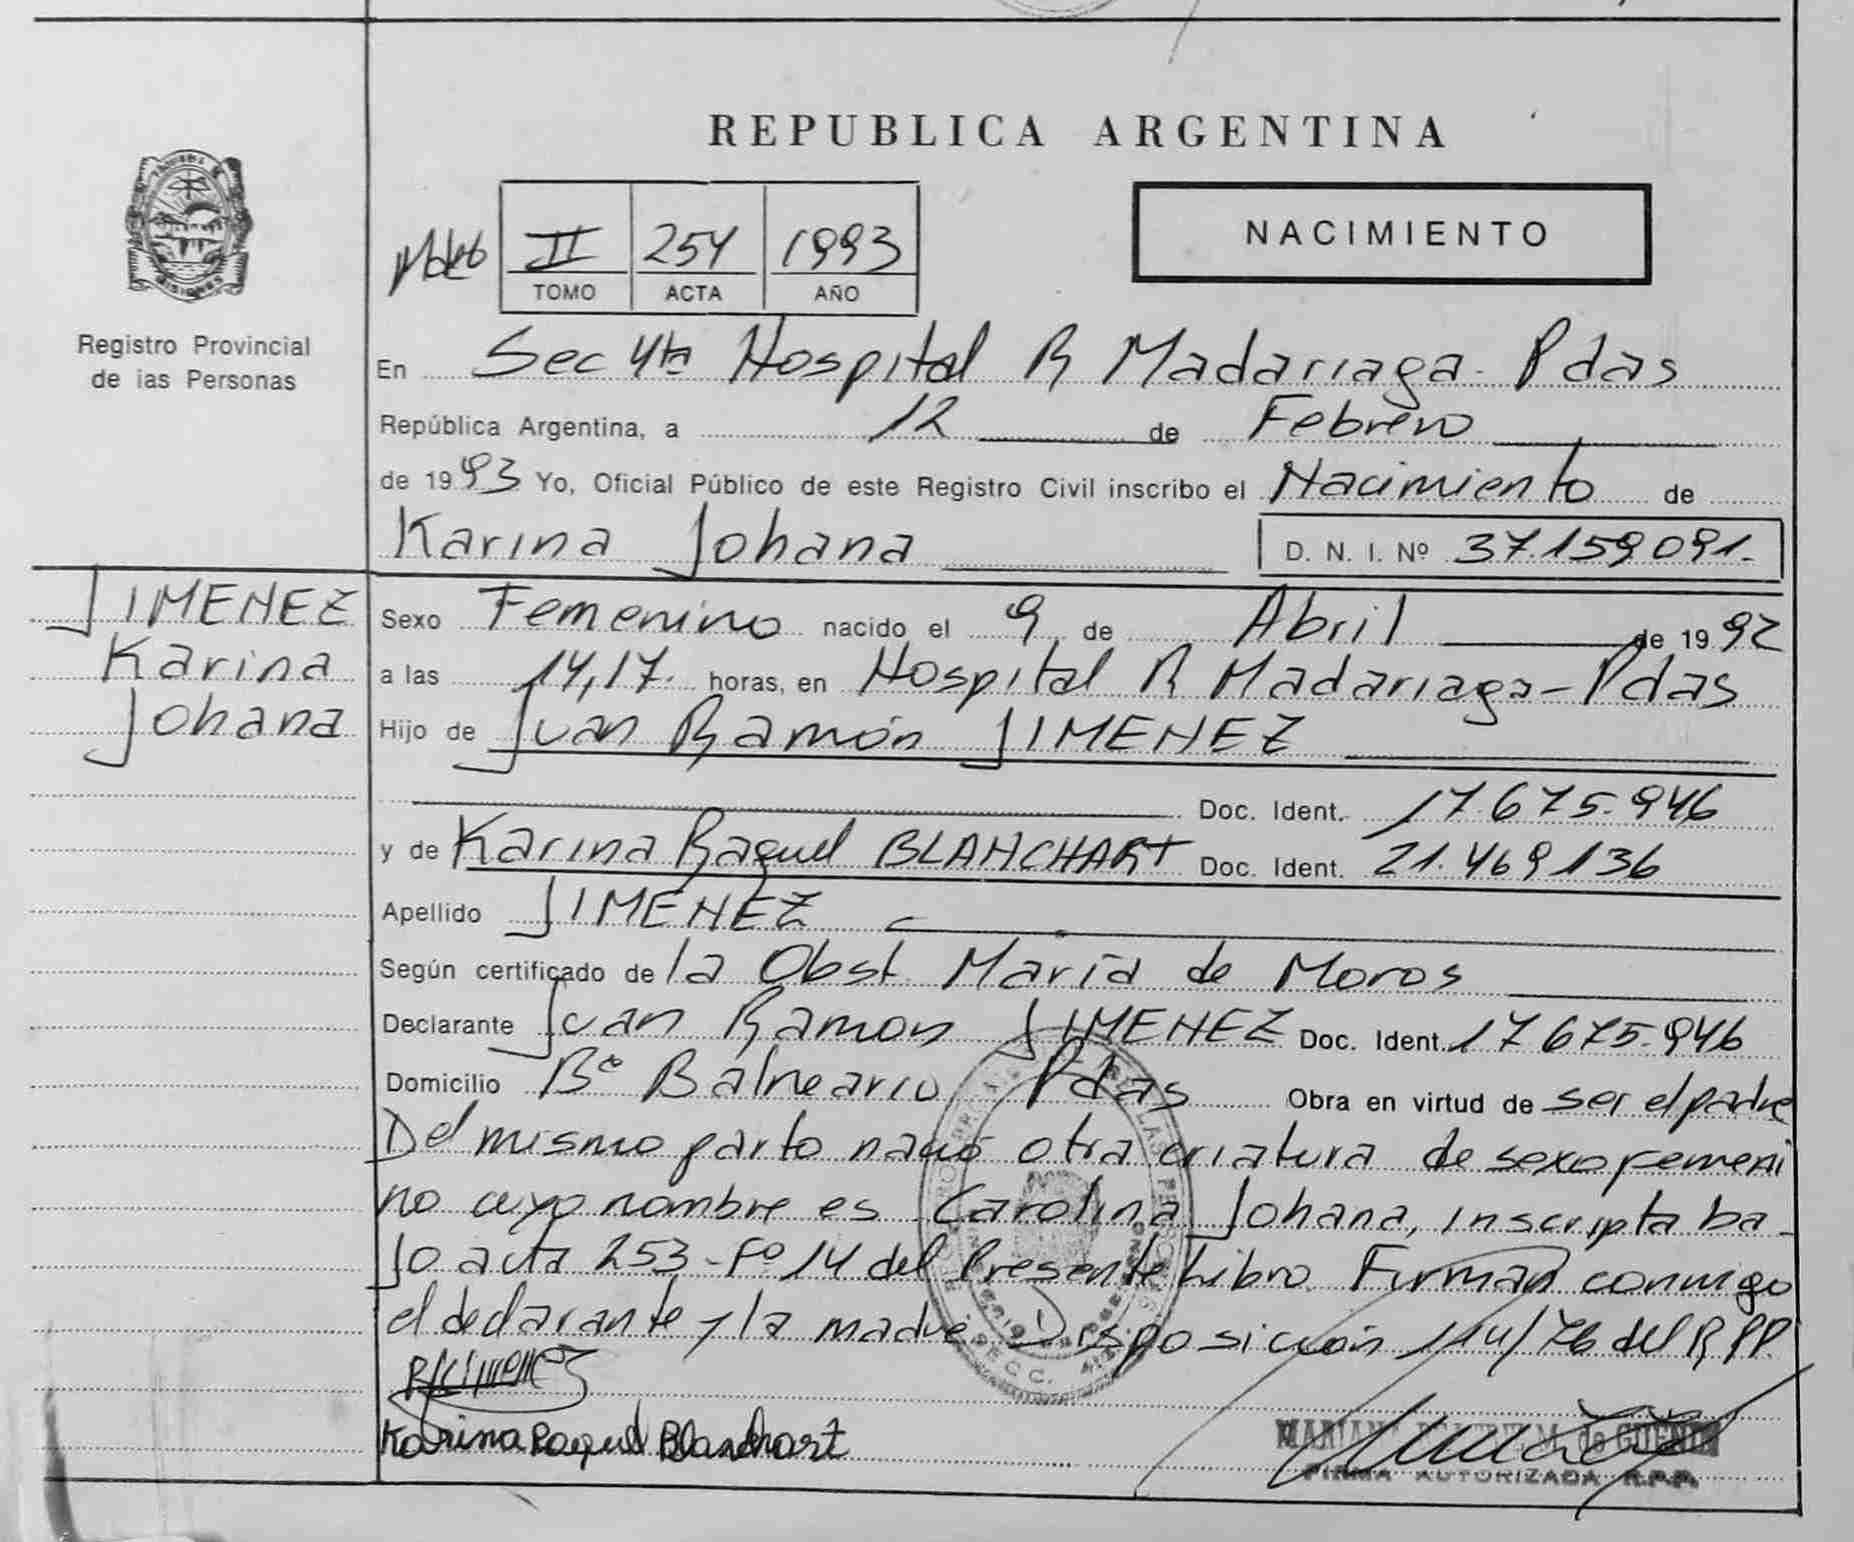 REPUBLICA ARGENTINA
II 254 1993
TOMO ACTA AÑO
NACIMIENTO
MISIONES
Registro Provincial
de las Personas
En Sec 4ta Hospital R Madariaga - Pdas
República Argentina, a 12 de Febrero
de 1993 Yo, Oficial Público de este Registro Civil inscribo el Nacimiento de
Karina Johana D. N. I. Nº 37.159.091.
JIMENEZ
Karina
Johana
Sexo Femenino nacido el 9 de Abril de 1992
a las 14,17. horas, en Hospital R Madariaga - Pdas
Hijo de Juan Ramón JIMENEZ
Doc. Ident. 17.675.946
y de Karina Raquel BLANCHART Doc. Ident. 21.469.136
Apellido JIMENEZ
Según certificado de la Obst. María de Moros
Declarante Juan Ramon JIMENEZ Doc. Ident. 17 675.946
Domicilio Bº Balneario Pdas Obra en virtud de ser el padre
Del mismo parto nació otra criatura de sexo femeni
no cuyo nombre es Carolina Johana, inscripta ba-
jo acta 253 - Fº 14 del Presente Libro. Firman conmigo
el declarante y la madre Disposición 114/76 del R PP.
Karina Raquel Blanchart
de GUENIN
FIRMA AUTORIZADA R.P.P.